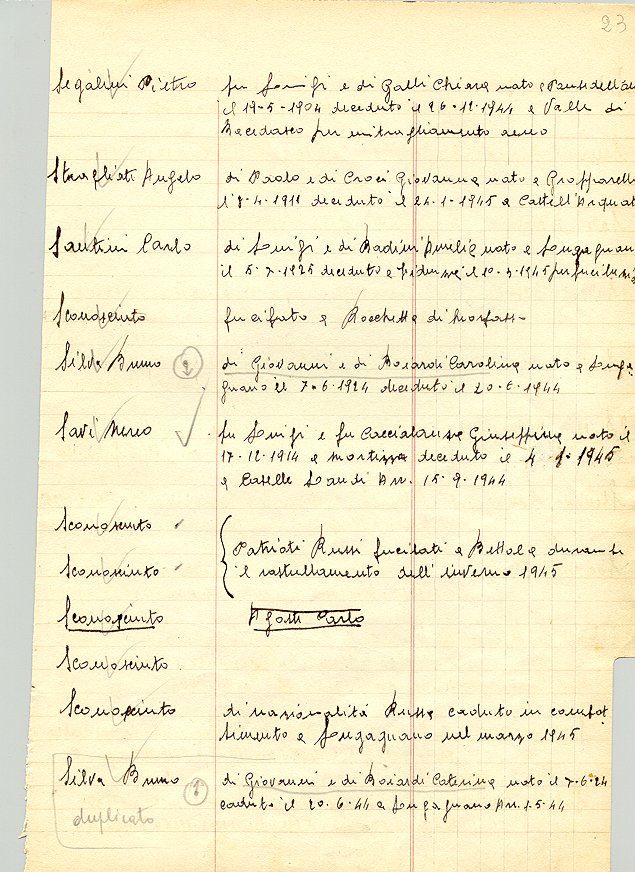 23
Segalini Pietro fu Luigi e di Galli Chiara nato a
il 19-5-1904 deceduto il 26-12-1944 a Valle di
per mitragliamento aereo
Stragliati Angelo di Paolo e di Croci Giovanna nato a Gropparelli
il 7-4-1911 deceduto il 24-1-1945 a Castell'Arquat
Santini Carlo di Luigi e di Badini Amelia nato a Lugagnan
il 5-7-1925 deceduto a Fidenza il 10-3-1945 per
Sconosciuto fucilato a Rocchetta di Morfasso
Silva Bruno (2) di Giovanni e di Boiardi Carolina nato a Luga
gnano il 7-6-1924 deceduto il 20-6 1944
Savi Nereo fu Luigi e fu Caccialanza Giuseppina nato il
17-12-1914 a Mortizza deceduto il 4 1945
a Caselle Landi Arr. 15-9-1944
Sconosciuto
Sconosciuto
Patrioti Russi fucilati a Bettola durante
il rastrellamento dell'inverno 1945
Sconosciuto Agosti Carlo
Sconosciuto
Sconosciuto di nazionalità Russa caduto in combat
timento a Lugagnano nel marzo 1945
Silva Bruno (1) di Giovanni e di Boiardi Caterina nato il 7-6-24
caduto il 20-6-44 a Lugagnano Arr. 1-5-44
duplicato